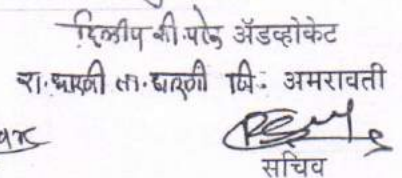 दिलीप बी. पोटे अ‍ॅडव्होकेट
रा. धारणी ता. धारणी जि. अमरावती
सचिव